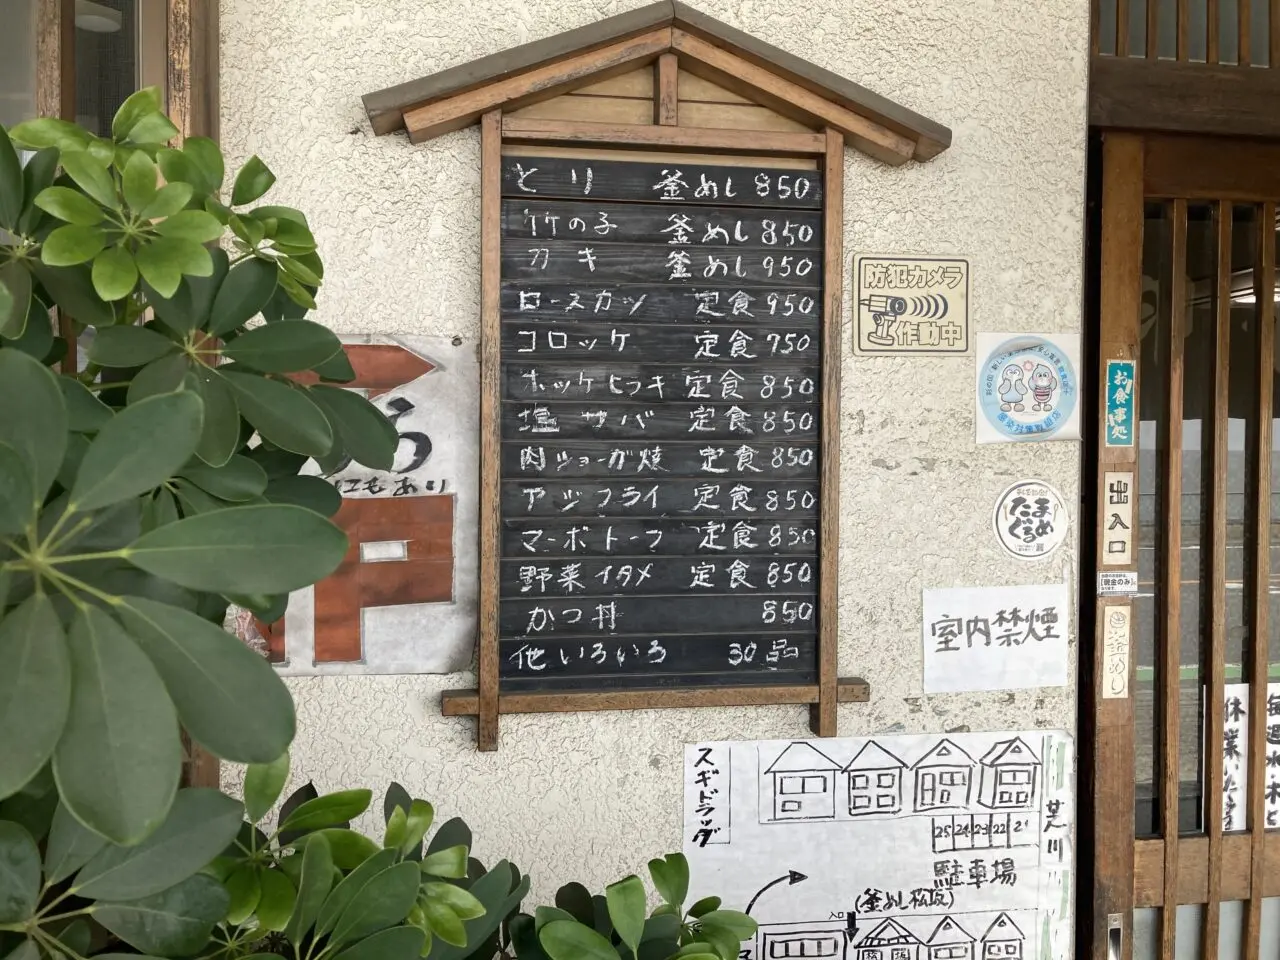 とり 釜めし 850
竹の子 釜めし 850
カキ 釜めし 950
ロースカツ 定食 950
コロッケ 定食 750
ホッケヒラキ 定食 850
塩サバ 定食 850
肉ショーガ焼 定食 850
アジフライ 定食 850
マーボトーフ 定食 850
野菜イタメ 定食 850
かつ丼 850
他いろいろ 30品
防犯カメラ
作動中
感染対策取組店
たまめぐる
お食事処
出入口
現金のみ
釜めし
室内禁煙
ちら
にもあり
P
スギドラッグ
芝川
25 24 23 22 21
駐車場
(釜めし松坂)
毎週水・木と
休業